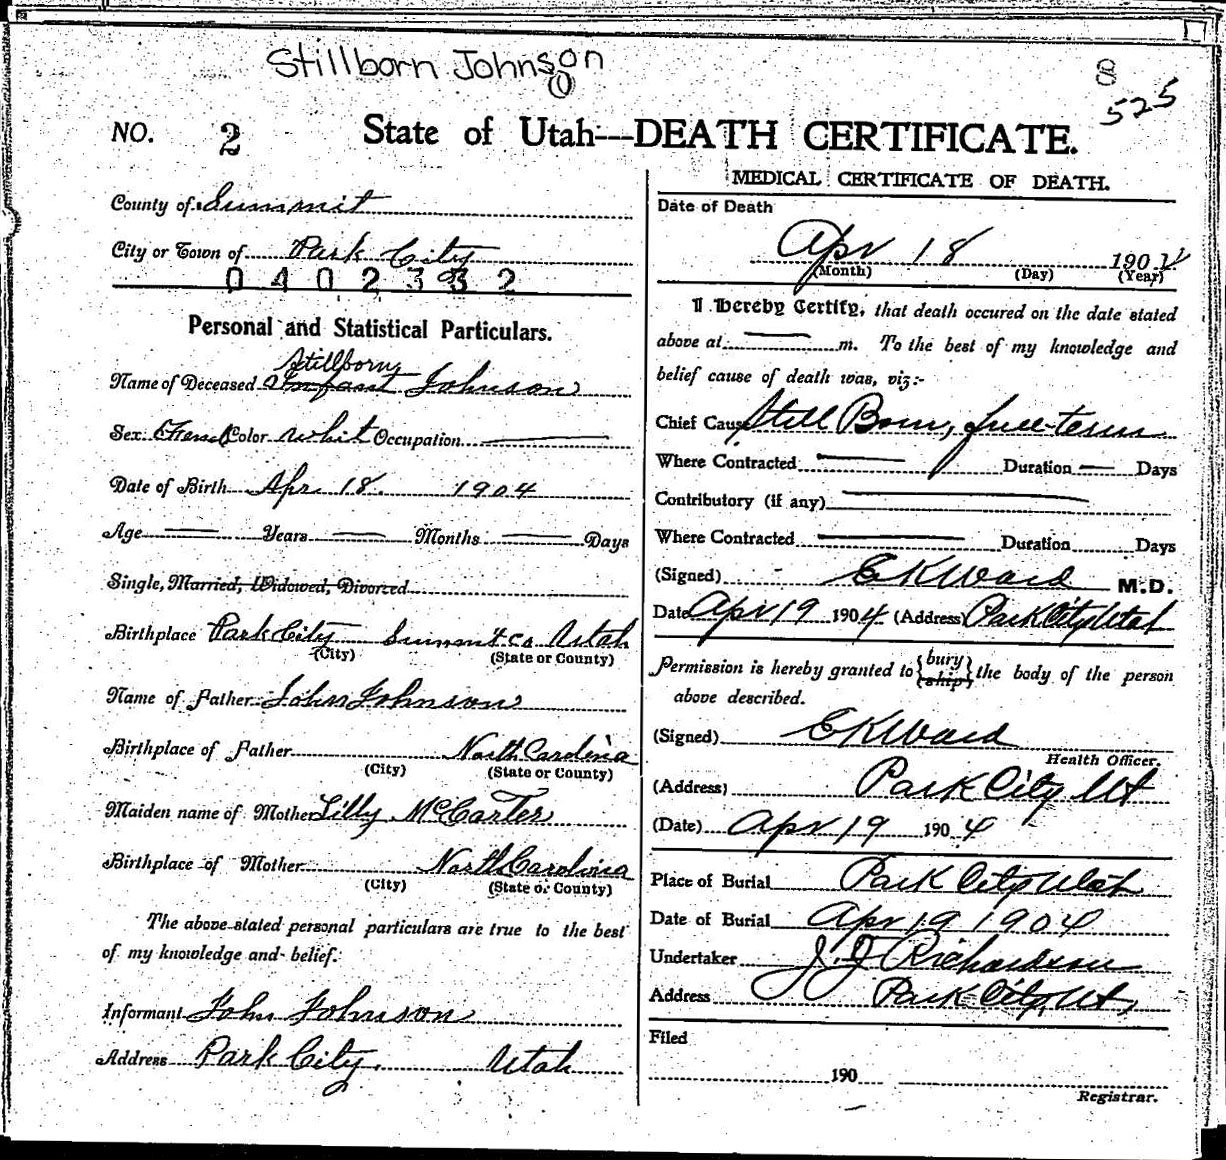 Stillborn Johnson
8
525
NO. 2 State of Utah—DEATH CERTIFICATE.
County of Summit
City or Town of Park City
0402332
Personal and Statistical Particulars.
Stillborn
Name of Deceased Infant Johnson
Sex Color White Occupation
Date of Birth Apr. 18. 1904
Age Years Months Days
Single, Married, Widowed, Divorced
Birthplace Park City Summit Co Utah
(City) (State or County)
Name of Father John Johnson
Birthplace of Father North Carolina
(City) (State or County)
Maiden name of Mother Lilly McCarter
Birthplace of Mother North Carolina
(City) (State or County)
The above stated personal particulars are true to the best
of my knowledge and belief.
Informant John Johnson
Address Park City, Utah
MEDICAL CERTIFICATE OF DEATH.
Date of Death
Apr 18 1904
(Month) (Day) (Year)
I Hereby Certify, that death occured on the date stated
above at m. To the best of my knowledge and
belief cause of death was, viz:-
Chief Cause Still Born, full-term
Where Contracted Duration Days
Contributory (if any)
Where Contracted Duration Days
(Signed) E K Ward M.D.
Date Apr 19 1904 (Address) Park City Utah
Permission is hereby granted to {bury
{ship} the body of the person
above described.
(Signed) E K Ward
Health Officer.
(Address) Park City Ut
(Date) Apr 19 1904
Place of Burial Park City Utah
Date of Burial Apr 19 1904
Undertaker J. J Richardson
Address Park City, Ut,
Filed
190
Registrar.